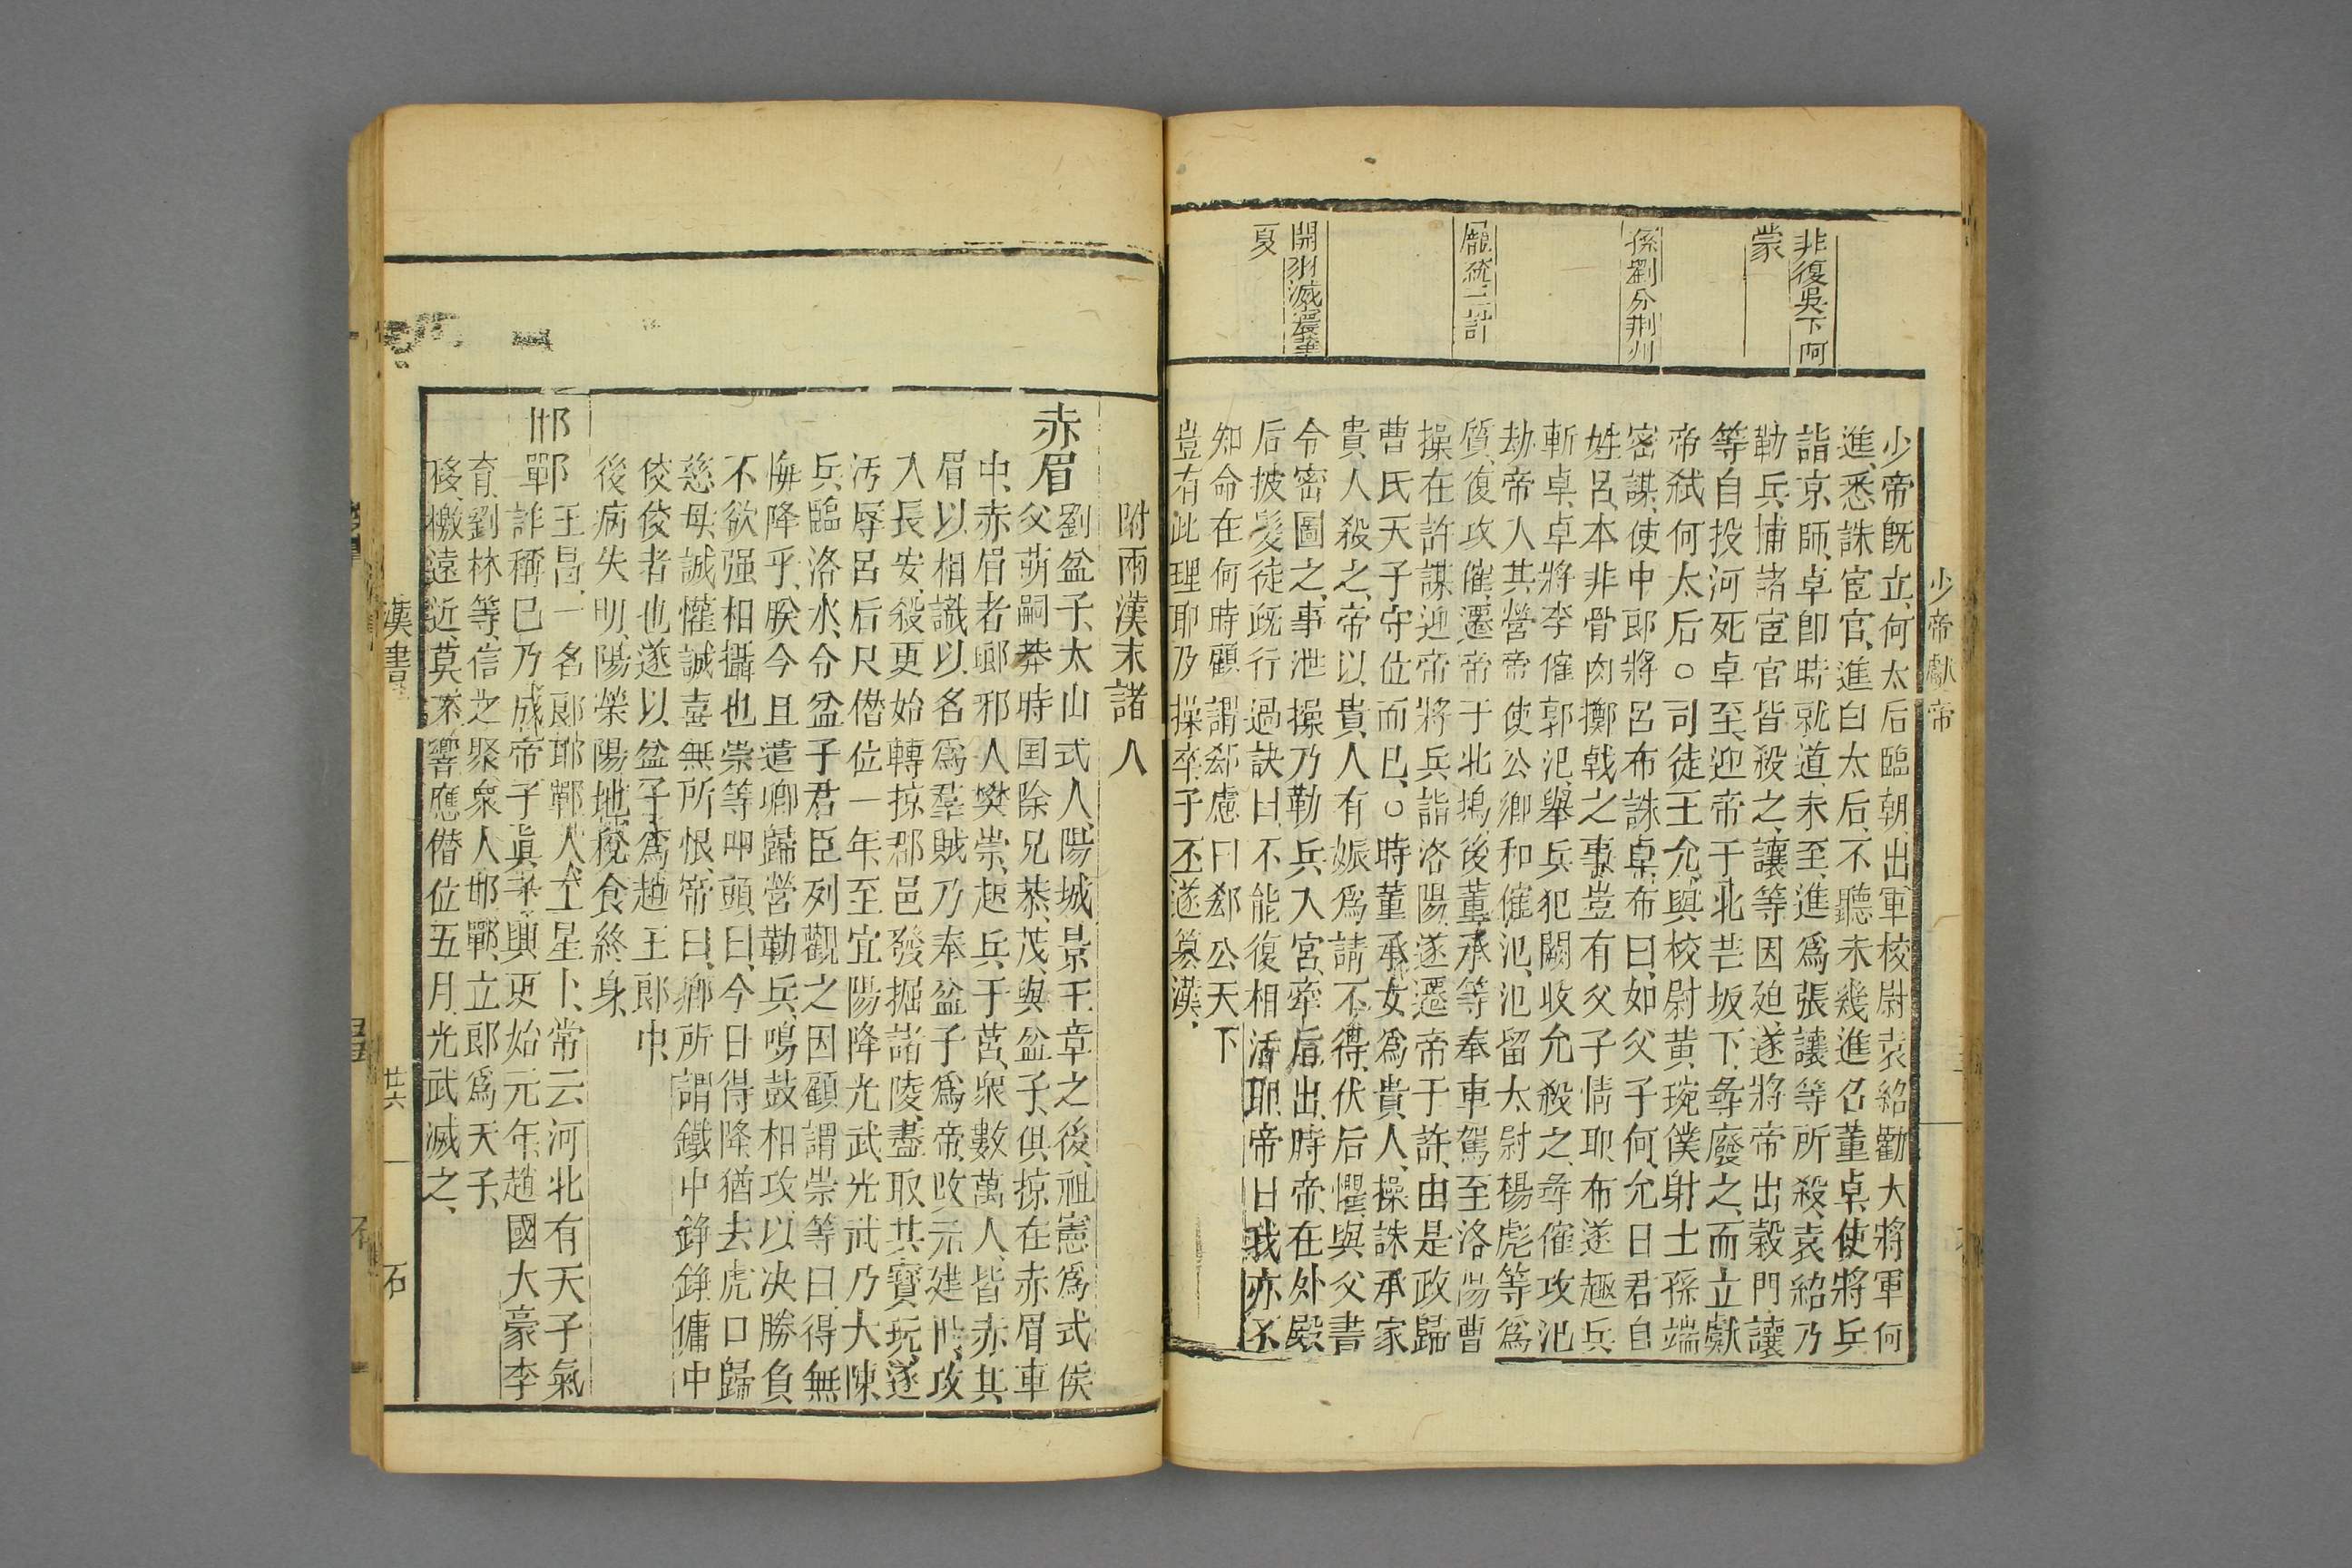 少帝獻帝
非復吳下阿
蒙
孫劉分荆州
龐統二計
夏
少帝旣立何太后臨朝出軍校尉袁紹勸大將軍何
進悉誅宦官進白太后不聽未幾進召董卓使將兵
詣京師卓卽時就道未至進爲張讓等所殺袁紹乃
勒兵捕諸宦官皆殺之讓等因廹遂將帝出穀門讓
等自投河死卓至迎帝于北芒坂下尋廢之而立獻
帝弑何太后○司徒王允與校尉黄琬僕射士孫端
密謀使中郎將呂布誅卓布曰如父子何允曰君自
姓呂本非骨肉擲戟之事豈有父子情耶布遂趣兵
斬卓卓將李傕郭汜舉兵犯闕收允殺之尋傕攻汜
劫帝人其營帝使公卿和傕汜汜留太尉楊彪等爲
質復攻傕遷帝于北塢後董承等奉車駕至洛陽曹
操在許謀迎帝將兵詣洛陽遂遷帝于許由是政歸
曹氏天子守位而已○時董承女爲貴人操誅承家
貴人殺之帝以貴人有娠爲請不得伏后懼與父書
令密圖之事泄操乃勒兵入宮牽后出時帝在外殿
后披髮徒跣行過訣曰不能復相活耶帝曰我亦不
知命在何時顧謂郄慮曰郄公天下
豈有此理耶乃操卒子丕遂簒漢
附兩漢末諸人
赤眉劉盆子太山式人陽城景王章之後祖憲爲式侯
父萌嗣莽時国除兄恭茂與盆子俱掠在赤眉車
中赤眉者瑯邪人樊崇起兵于莒衆數萬人皆赤其
眉以相識以名爲羣賊乃奉盆子爲帝改元建世攻
入長安殺更始轉掠郡邑發掘諸陵盡取其寳玩遂
汚辱呂后尸僭位一年至宜陽降光武光武乃大陳
兵臨洛水令盆子君臣列觀之因顧謂崇等曰得無
悔降乎朕今且遣卿歸營勒兵鳴鼓相攻以决勝負
不欲强相攝也崇等叩頭曰今日得降猶去虎口歸
慈母誠懽誠喜無所恨帝曰卿所謂鐵中錚錚傭中
佼佼者也遂以盆子爲趙王郎中
後病失明陽榮陽地稅食終身
邯鄲王昌一名郎耶鄲人工星卜常云河北有天子氣
詐稱已乃成帝子眞子輿更始元年趙國大豪李
育劉林等信之聚衆人邯鄲立郎爲天子
移檄遠近莫不響應僭位五月光武滅之
漢書
共
石